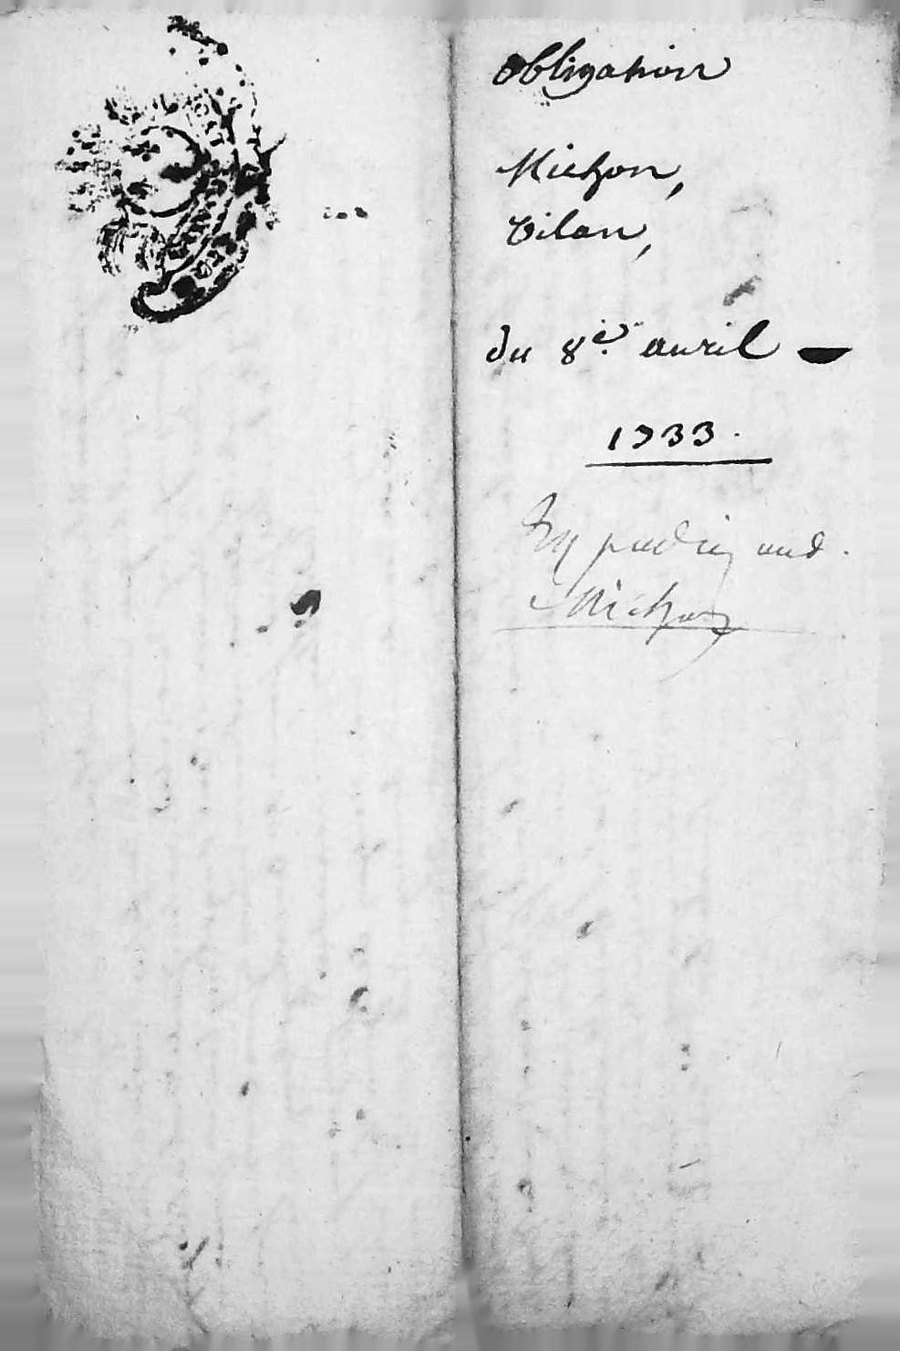 obligation
Michon,
Vilan,
du 8e. avril
1733.
Michon